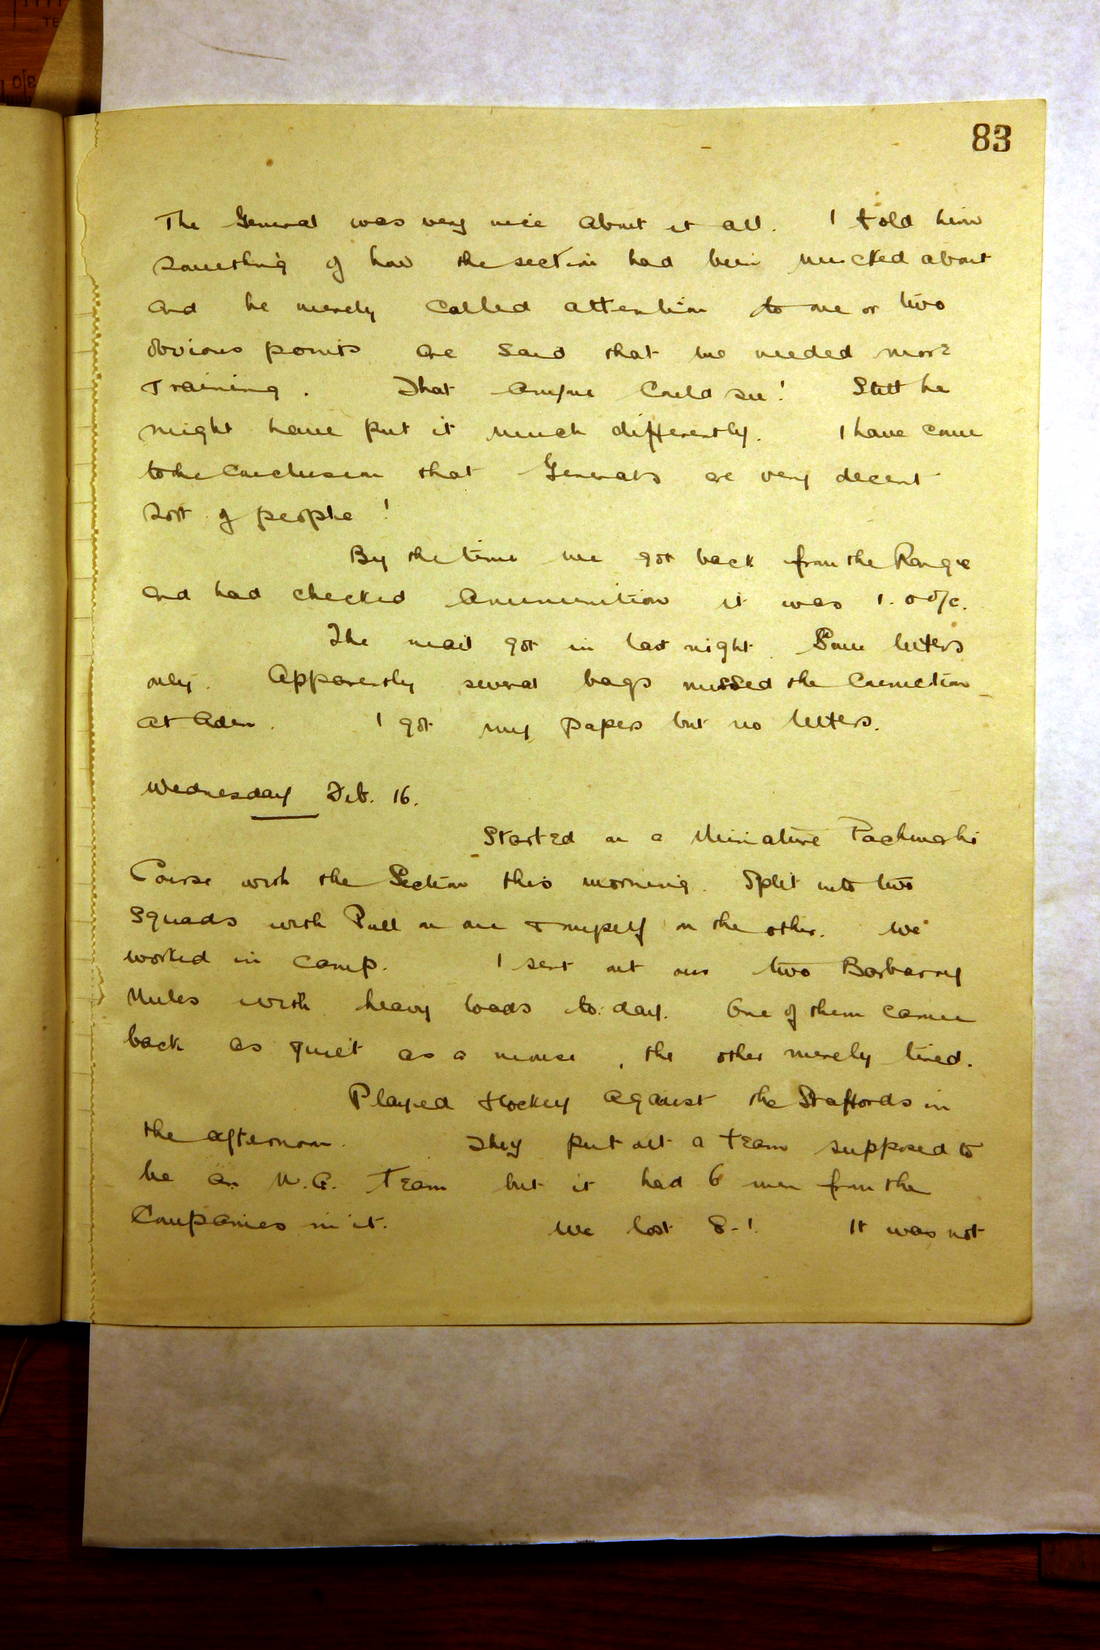 83
The General was very nice about it all. I told him
something of how the section had been mucked about
and he merely called attention to one or two
obvious points and said that we needed more
Training. That anyone could see! Still he
might have put it much differently. I have come
to the conclusion that Generals are very decent
sort of people!
By the time we got back from the Range
and had checked ammunition it was 1. o'c/c.
The mail got in last night. Some letters
only. Apparently several bags missed the connection
at Aden. I got my papers but no letters.
Wednesday Feb. 16.
Started on a Miniature Pachmarhi
Course with the Section this morning. Split into two
squads with Pull on one & myself on the other. We
worked in camp. I sent out our two Barbarry
Mules with heavy loads to-day. One of them came
back as quiet as a mouse, the other merely tired.
Played Hockey against the Staffords in
the afternoon. They put out a team supposed to
be an M.G. Team but it had 6 men from the
Companies in it. We lost 8-1. It was not